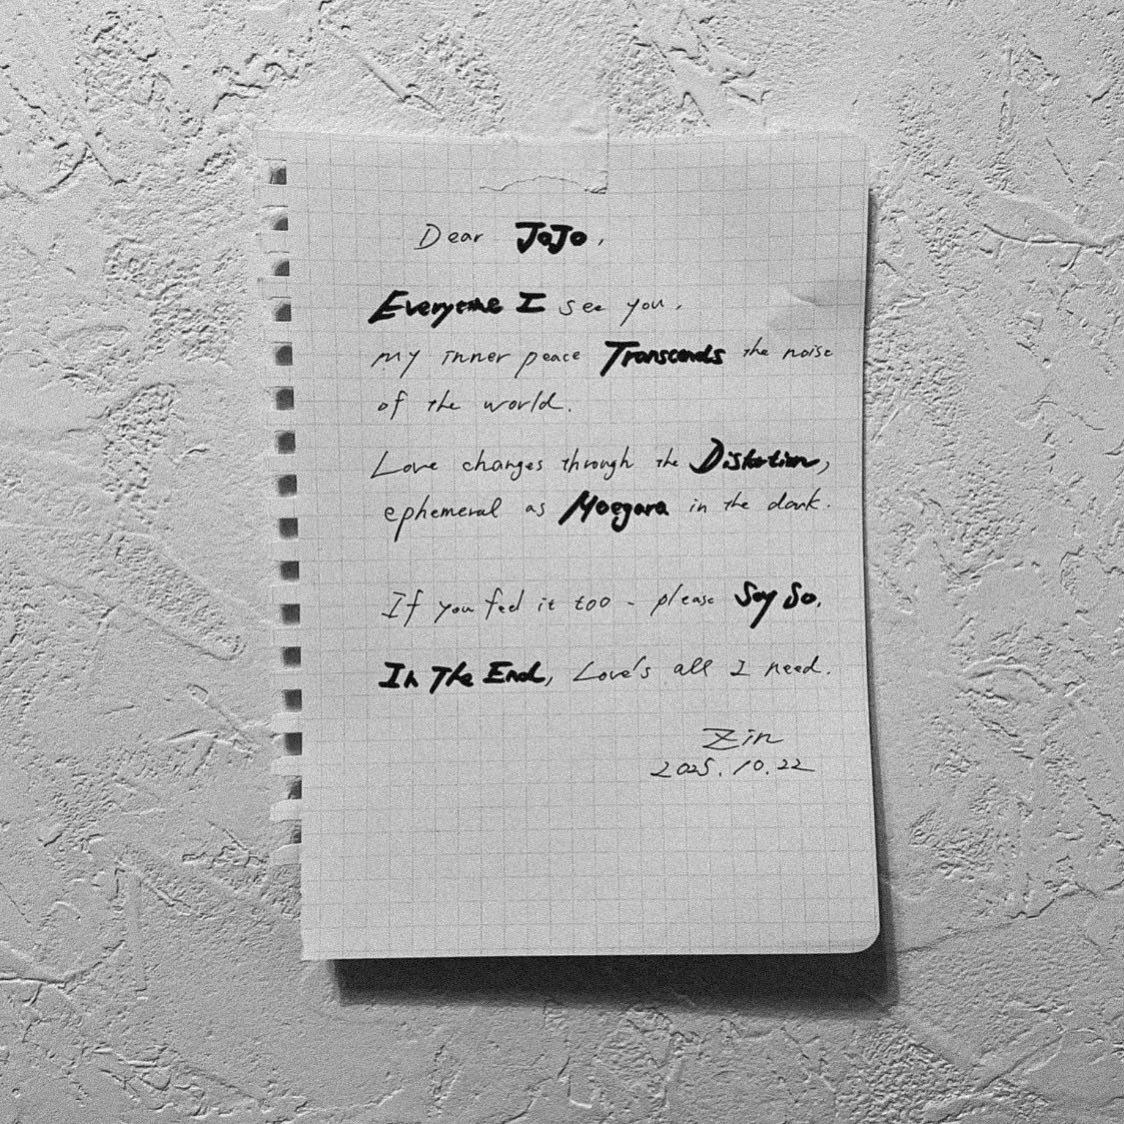 Dear JoJo,
Everytime I see you,
my inner peace Transcends the noise
of the world.
Love changes through the Distortion,
ephemeral as Moegara in the dark.
If you feel it too - please Say So.
In The End, Love's all I need.
Zin
2025.10.22